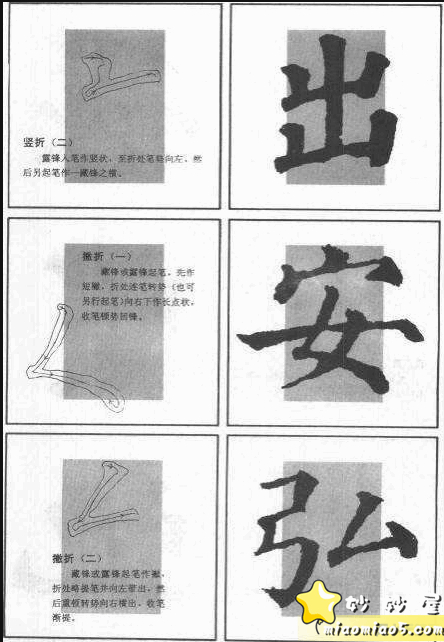 竖折（二）
露锋入笔作竖状，至折处笔锋向左，然
后另起笔作一藏锋之横。
出
撇折（一）
藏锋或露锋起笔，先作
短撇，折处连笔转势（也可
另行起笔）向右下作长点状，
收笔顿势回锋。
安
撇折（二）
藏锋或露锋起笔作撇，
折处略提笔并向左带出，然
后重顿转势向右横出，收笔
渐提。
弘
妙妙屋
miaomiao5.com